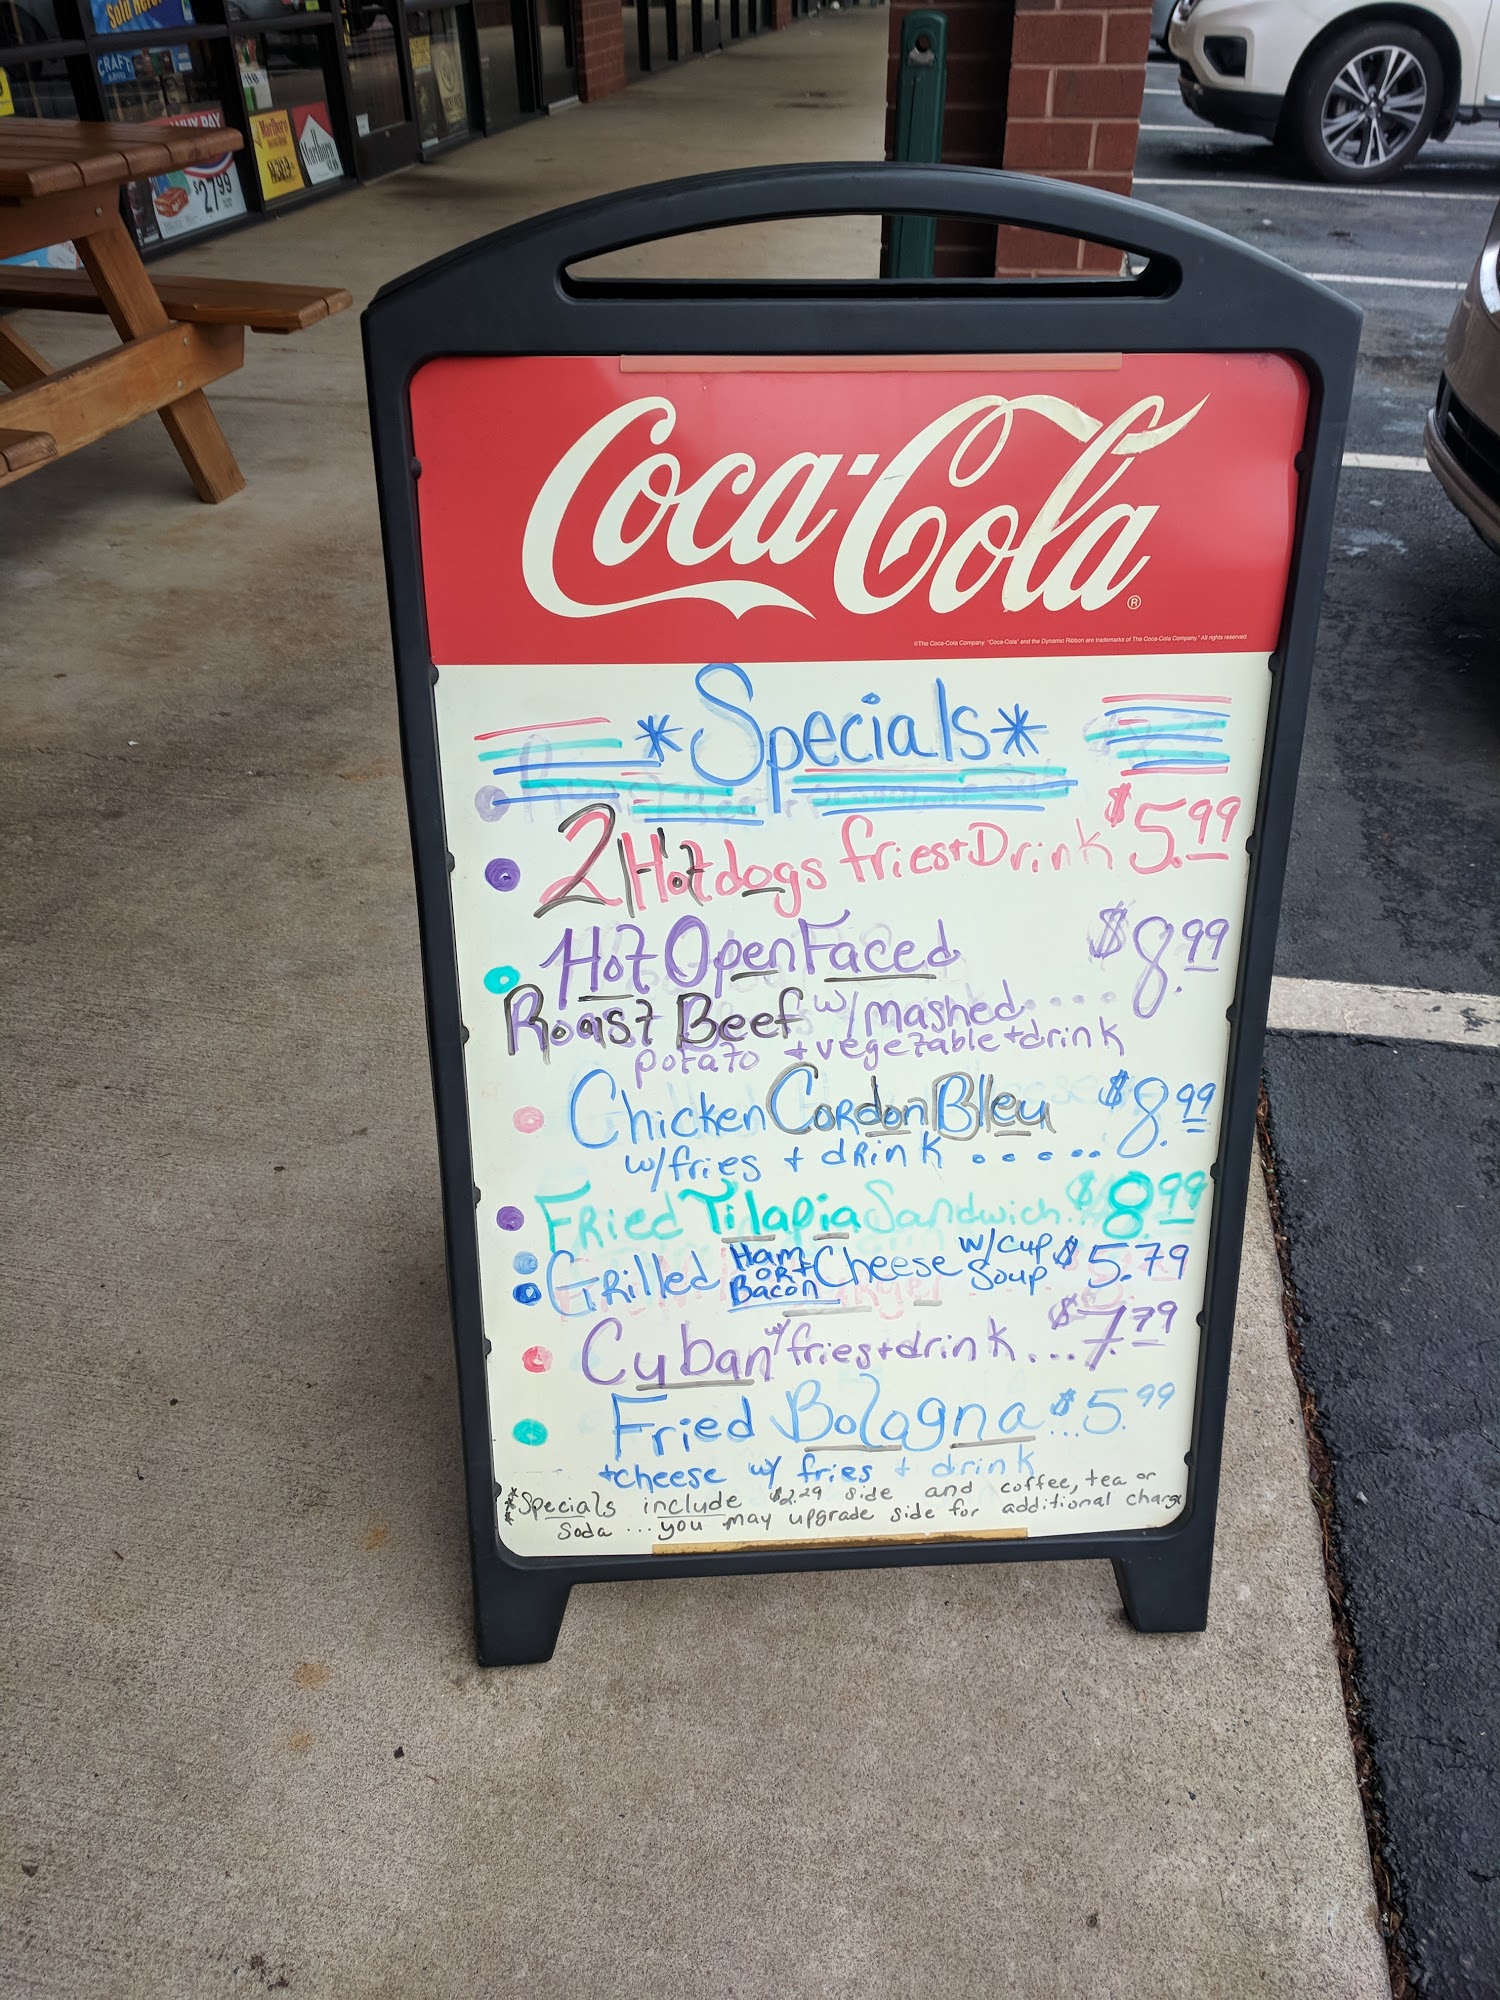 Sold Here!
CRAFT
WHY PAY
$27.99
Marlboro
Marlboro
Coca-Cola®
©The Coca-Cola Company. "Coca-Cola" and the Dynamic Ribbon are trademarks of The Coca-Cola Company. All rights reserved.
*Specials*
2 Hotdogs fries + Drink $5.99
Hot Open Faced $8.99
Roast Beef w/ mashed....
potato + vegetable + drink
Chicken Cordon Bleu $8.99
w/fries + drink .....
Fried Tilapia Sandwich. $8.99
Grilled Ham or Bacon + Cheese w/ cup Soup $5.79
Cuban w/ fries + drink... $7.79
Fried Bologna ... $5.99
+cheese w/ fries + drink
*Specials include $2.29 side and coffee, tea or
Soda ... you may upgrade side for additional charge